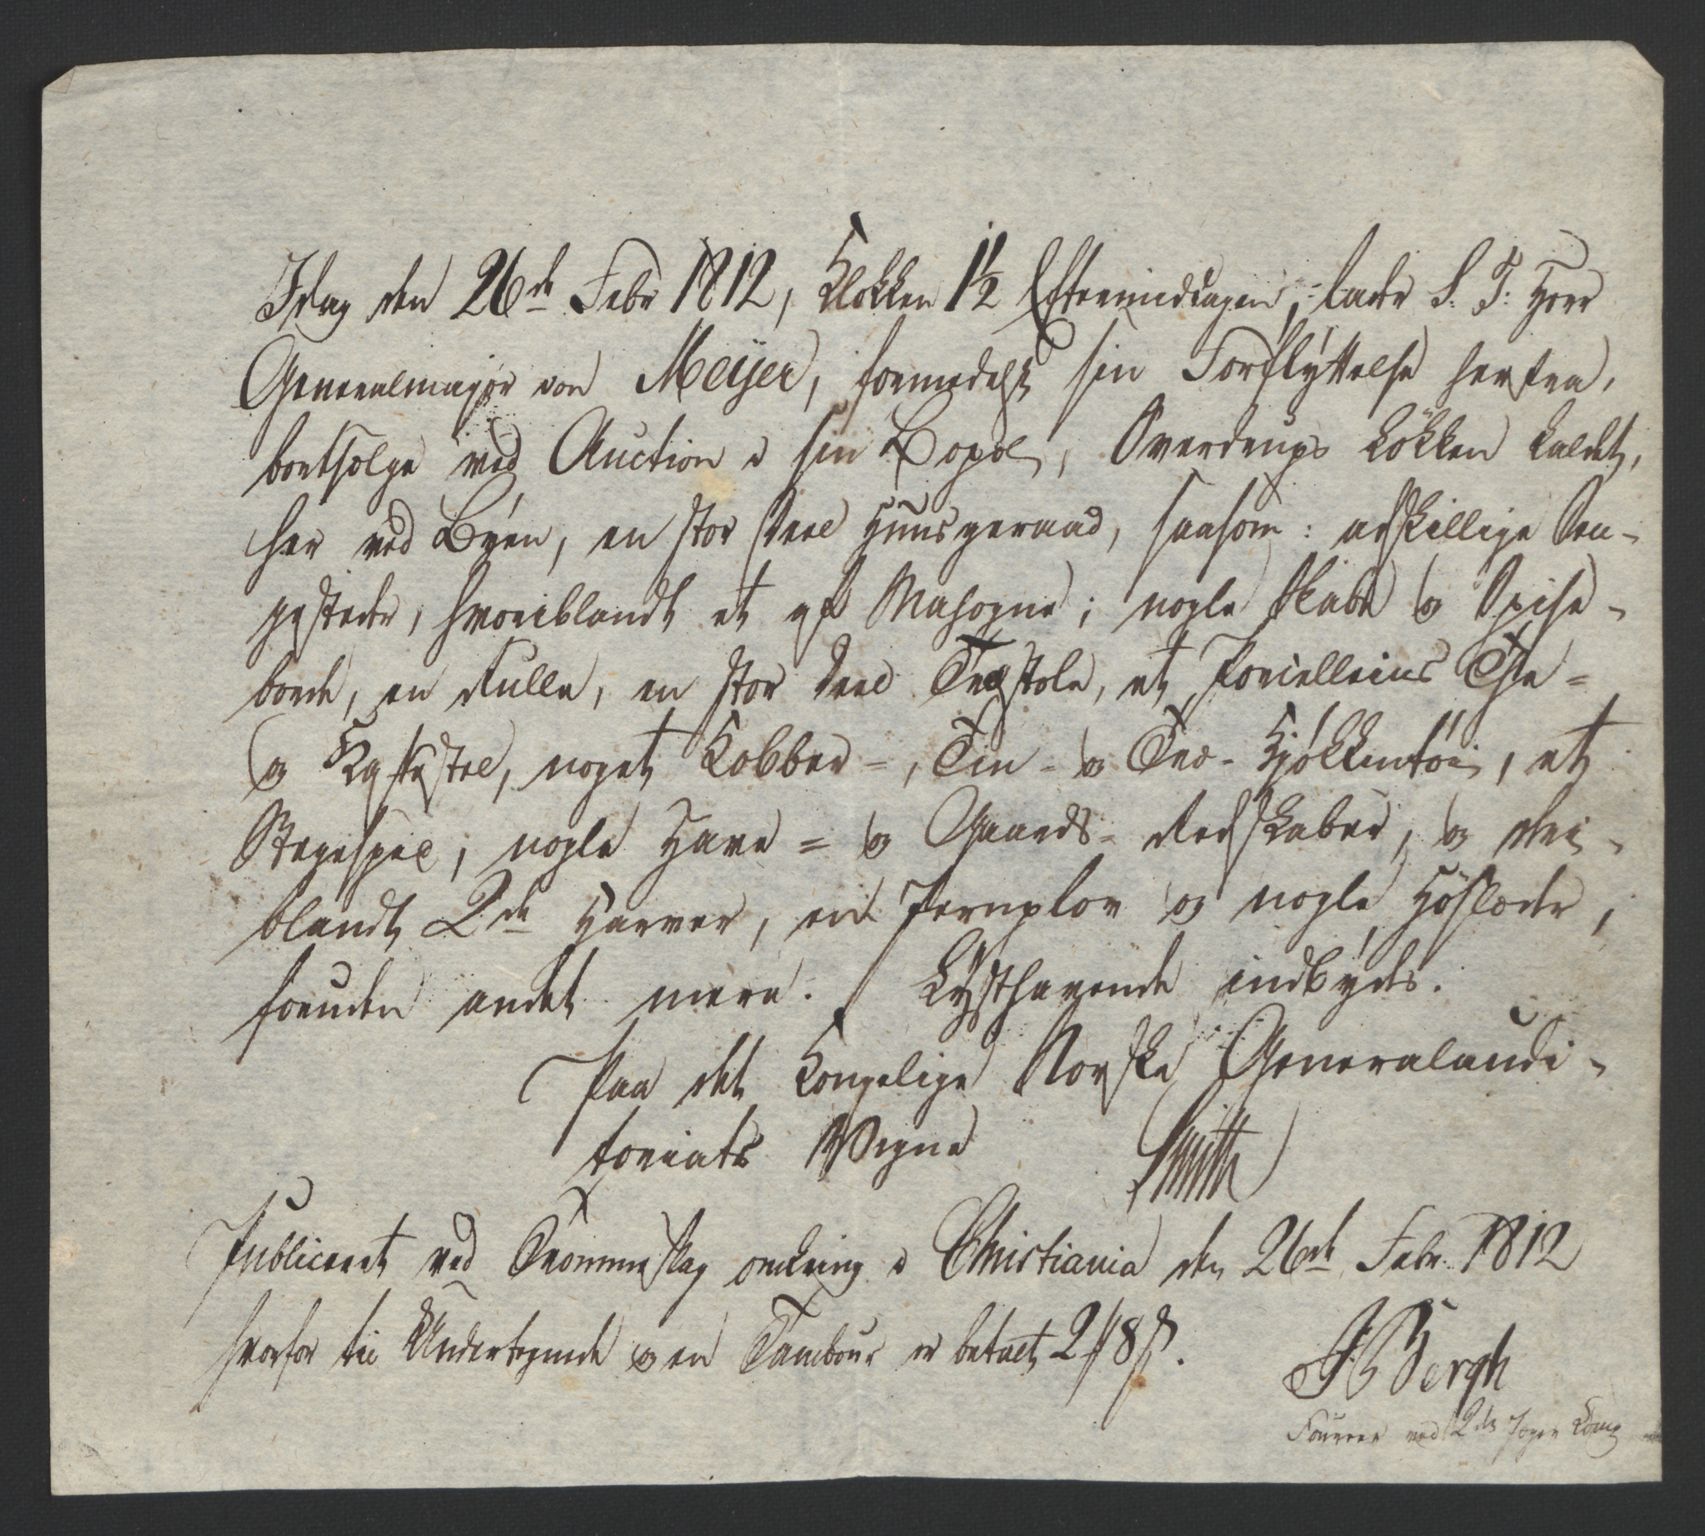 Idag den 26de Febr 1812, Klokken 1½ Eftermiddagen, lader S. T. Herr
Generalmajor von Meijer, formedelst sin Forflyttelse herfra,
bortsælge ved Auction i sin Bopæl, Overdrups Løkken kaldet,
her ved Byen, en stor Deel Huusgeraad, saasom: adskillige Sen-
gesteder, hvoriblandt et af Mahogne; nogle Skabe og Spise-
borde, en Rulle, en stor Deel Træstole, et Porcellains The=
og Kaffestel, noget Kobber-, Tin- og Træ-Kjøkkentøi, et
Stegespel, nogle Have= og Gaards-Redskaber, og der-
blandt 2de Harver, en Jernplov og nogle Høslæder,
foruden andet mere. Lysthavende indbydes.
Paa det Kongelige Norske Generalaudi-
toriats Vegne Smith
Publiceret ved Trommeslag omkring i Christiania den 26de Febr. 1812
hvorfor til Undertegnede og en Tambour er betalt 2 8
Bergh
Fourer ved 2det Jæger Comp